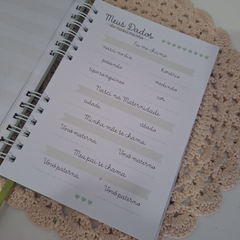 Meus Dados
Eu me chamo
nasci no dia
horário
pesando
medindo
Nasci na Maternidade
cidade
estado
Minha mãe se chama
Vovô materno
Vovó materna
Meu pai se chama
Vovô paterno
Vovó paterna